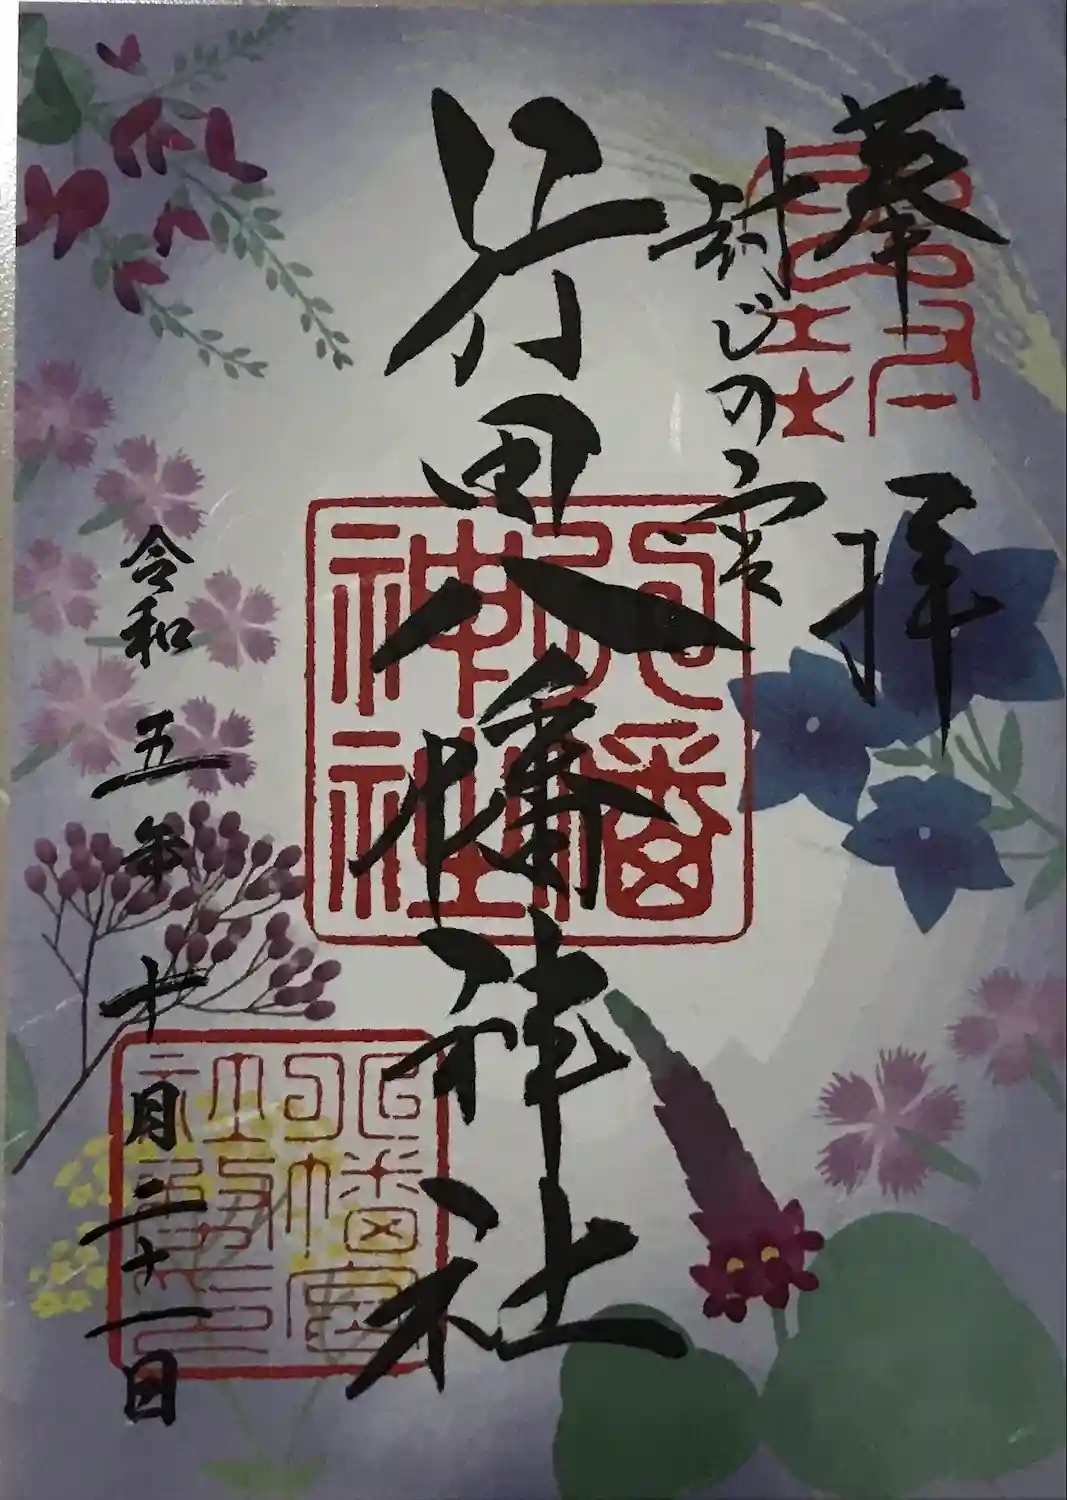 奉拝
封じの宮
行田八幡神社
八幡
神社
令和五年十月三十一日